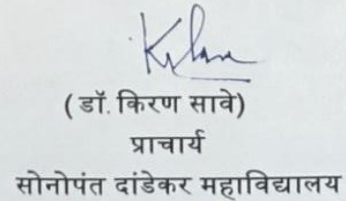 (डॉ. किरण सावे)
प्राचार्य
सोनोपंत दांडेकर महाविद्यालय